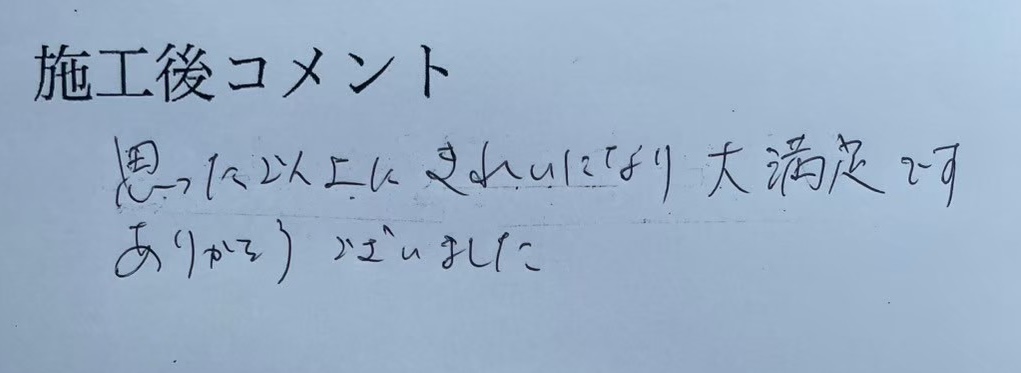 施工後コメント
思った以上にきれいになり大満足です
ありがとうございました